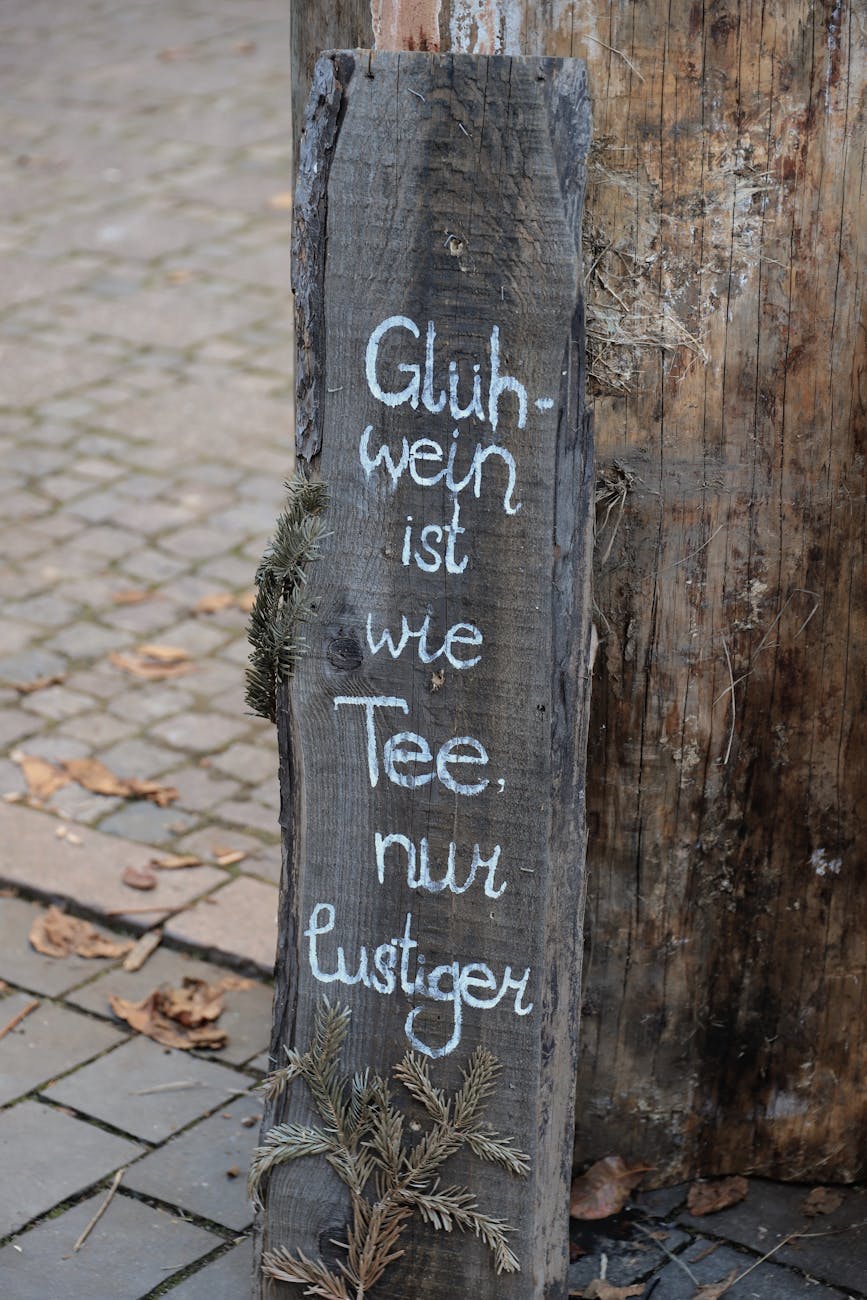 Glüh-
wein
ist
wie
Tee,
nur
lustiger